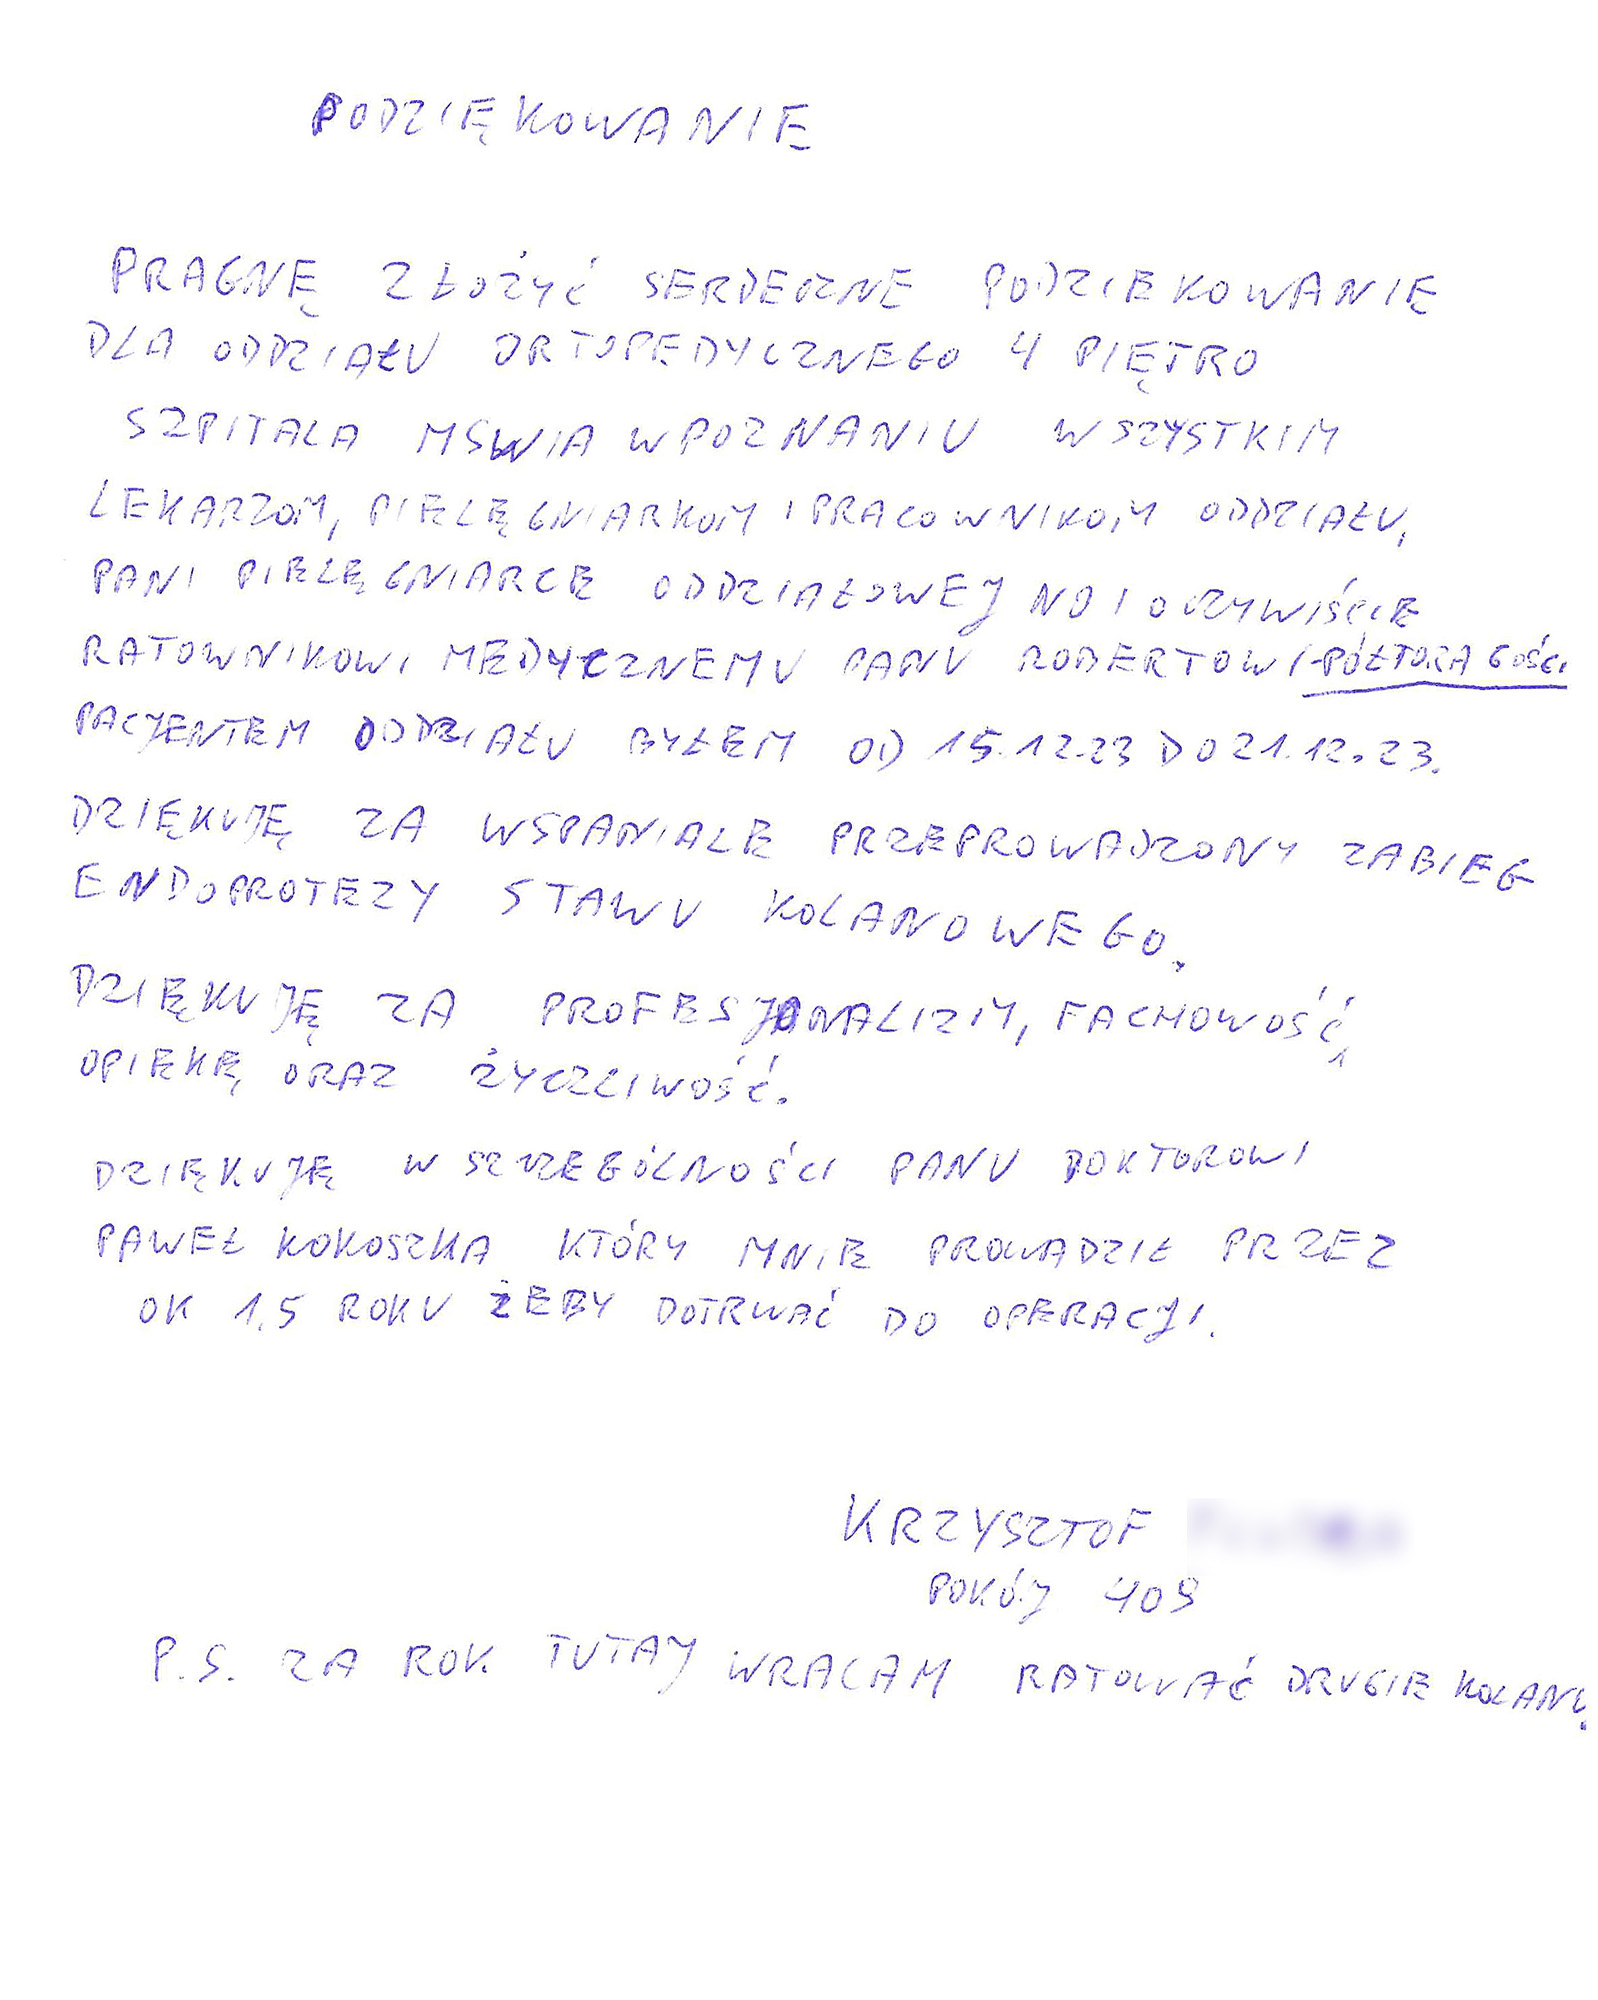 PODZIĘKOWANIĘ
PRAGNĘ ZŁOŻYĆ SERDECZNE PODZIEKOWANIĘ
DLA ODDZIAŁU ORTOPEDYCZNEGO 4 PIĘTRO
SZPITALA MSWIA W POZNANIU WSZYSTKIM
LEKARZOM, PIELĘGNIARKOM I PRACOWNIKOM ODDZIAŁU,
PANI PIELĘGNIARCE ODDZIAŁOWEJ NO I OCZYWIŚCIE
RATOWNIKOWI MEDYCZNEMU PANU ROBERTOWI - PÓŁTORA GOŚCI
PACJENTEM ODDZIAŁU BYŁEM OD 15.12.23 DO 21.12.23.
DZIĘKUJĘ ZA WSPANIALE PRZEPROWADZONY ZABIEG
ENDOPROTEZY STAWU KOLANOWEGO.
DZIĘKUJĘ ZA PROFESJONALIZM, FACHOWOŚĆ,
OPIEKĘ, ORAZ ŻYCZLIWOŚĆ.
DZIĘKUJĘ W SZCZEGÓLNOŚCI PANU DOKTOROWI
PAWEŁ KOKOSZKA KTÓRY MNIE PROWADZIŁ PRZEZ
OK 1,5 ROKU ŻEBY DOTRWAĆ DO OPERACJI.
KRZYSZTOF
POKÓJ 409
P.S. ZA ROK TUTAJ WRACAM RATOWAĆ DRUGIE KOLANO.